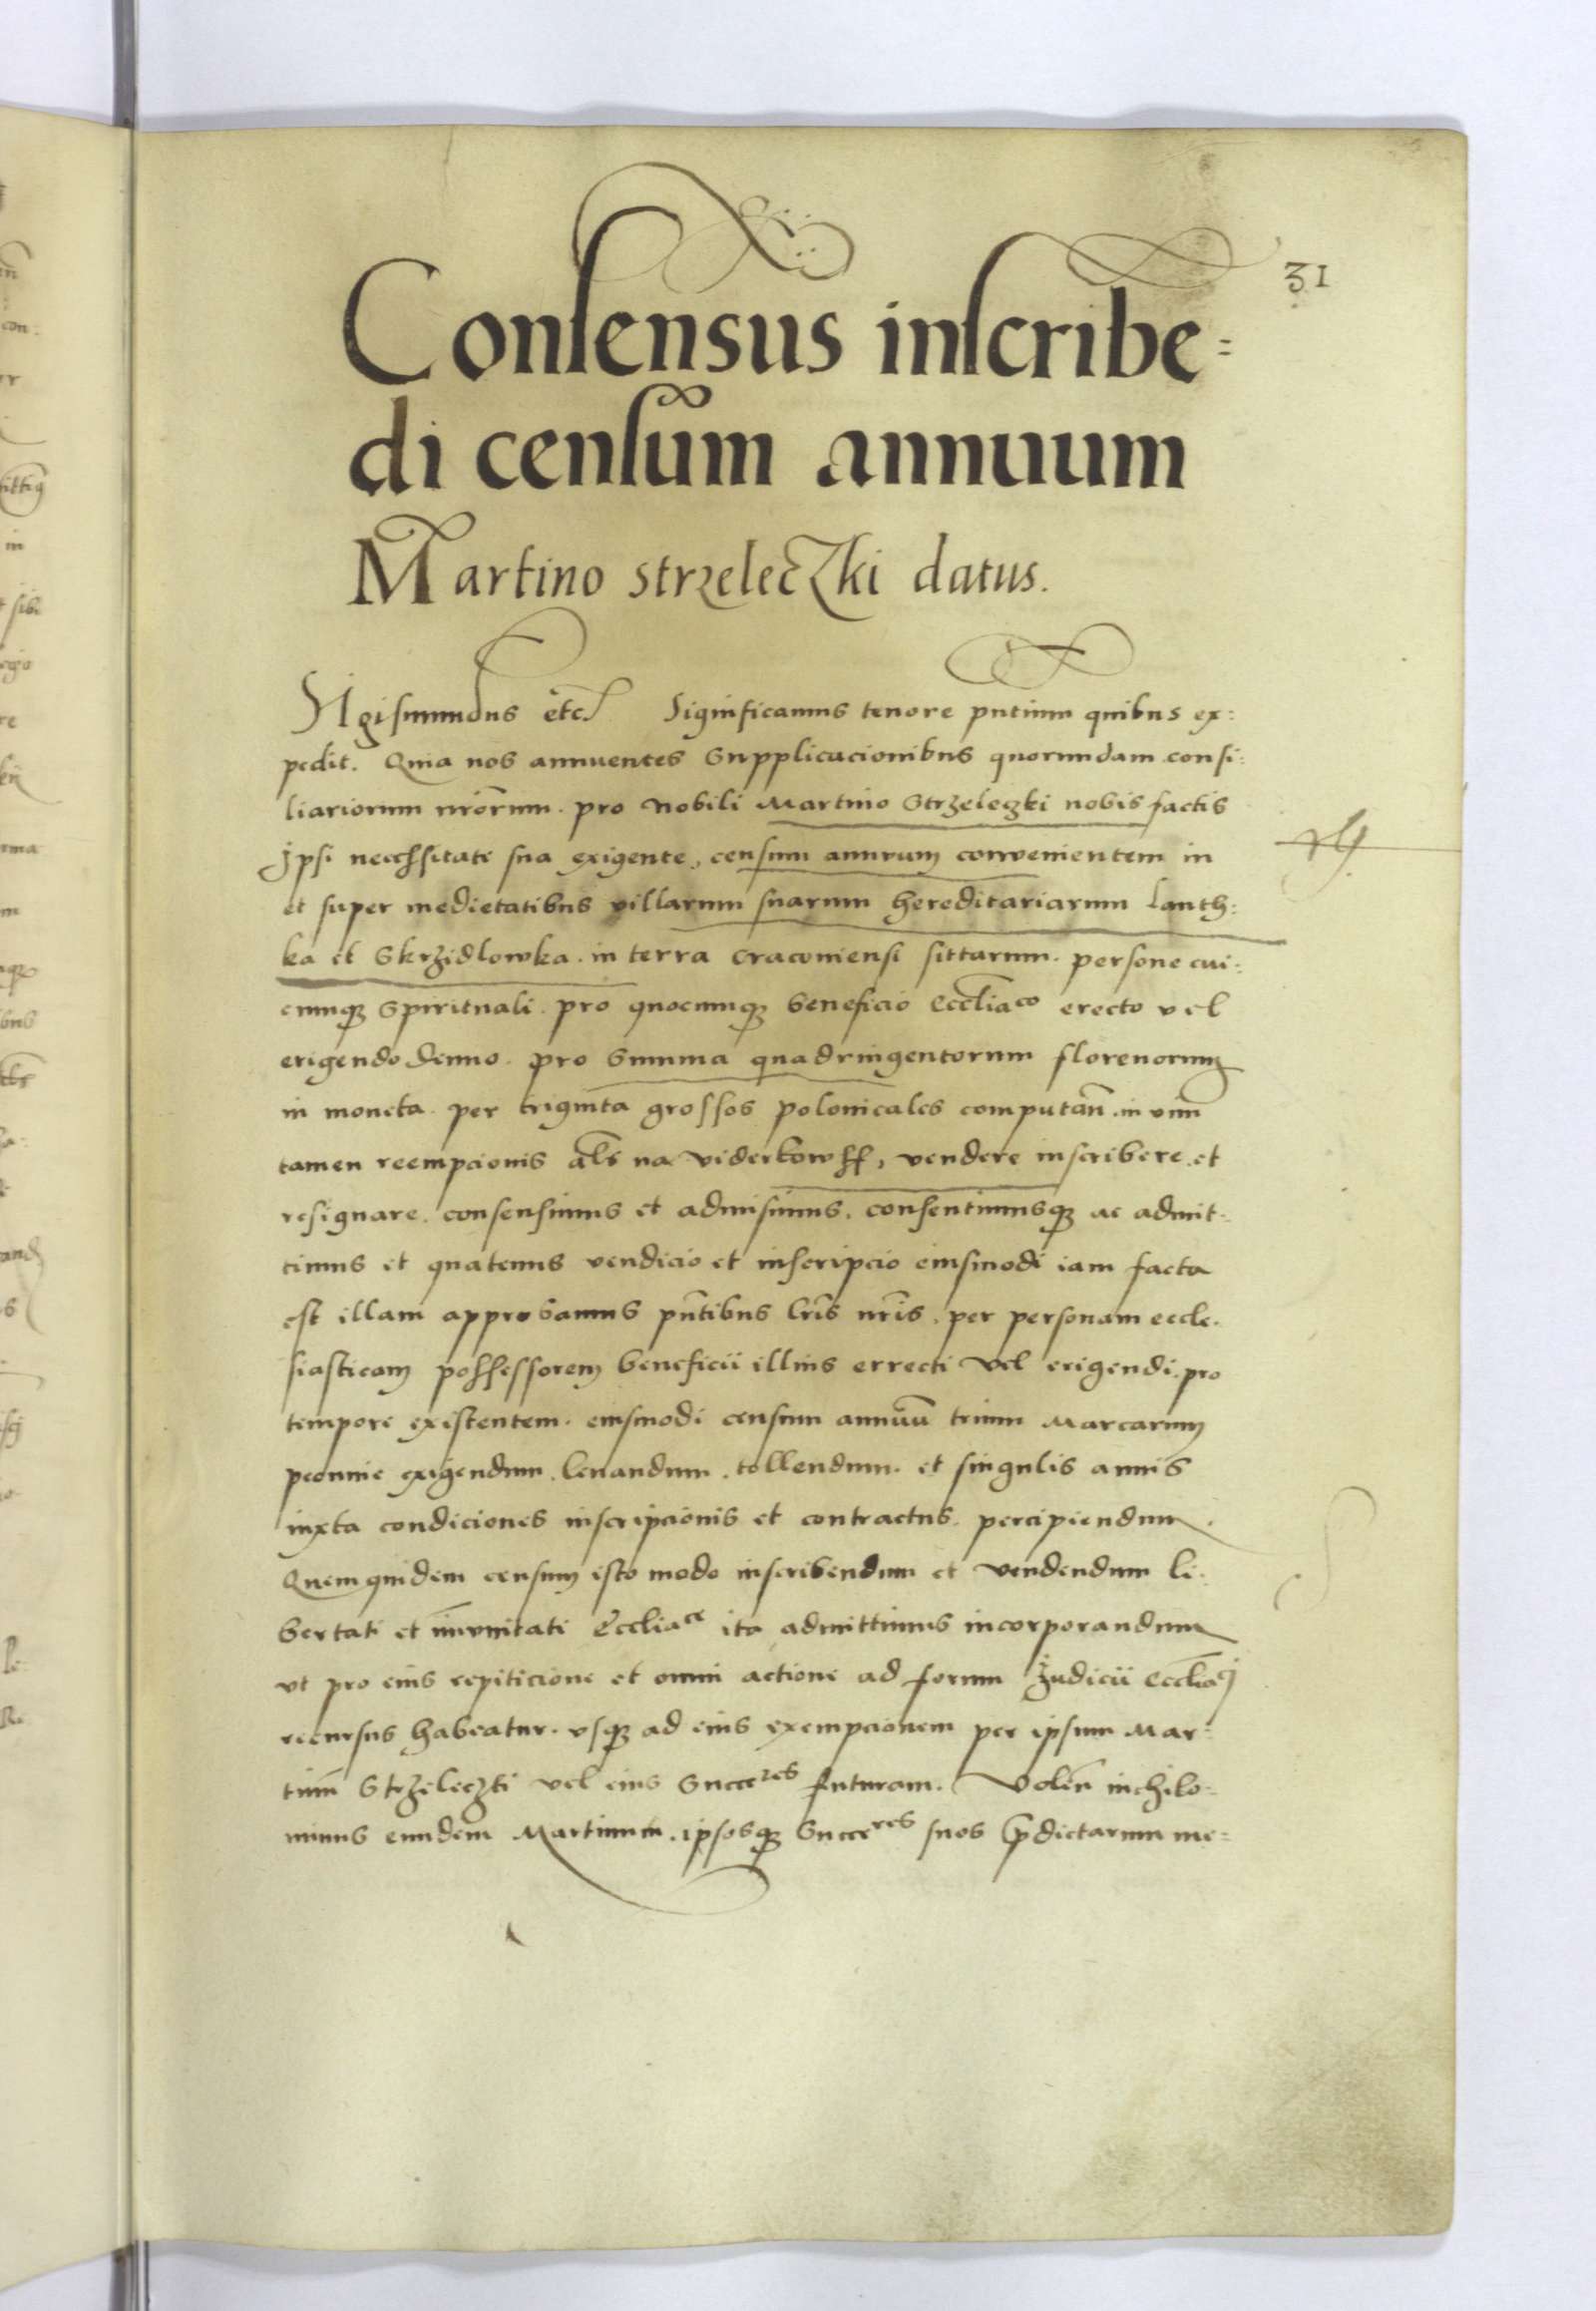 31
Consensus inscribe=
di censum annuum
Martino strzeleczki datus.
Sigismundus etc. Significamus tenore pntium quibus ex:
pedit. Quia nos annuentes Supplicacionibus quorumdam consi:
liariorum nrorum. pro nobili Martino Strzeleczki nobis factis
Ipsi necessitate sua exigente, censum annuum convenientem in
et super medietatibus villarum suarum hereditariarum Lanth:
ka et Skrzidlowka. in terra Cracoviensi sittarum. persone cui:
cumq3 Spirituali. pro quocumq3 beneficio Eccliaco erecto vel
erigendo denuo. pro Summa quadringentorum florenorum
in moneta. per triginta grossos polonicales computan. in vim
tamen reempcionis als na viderkowff, vendere inscribere et
resignare. consensimus et admisimus. consentimusq3 ac admit:
timus et quatenus vendicio et inscripcio eiusmodi iam facta
est illam approbamus pntibus lris nris. per personam eccle.
siasticam possessorem beneficii illius errecti vel erigendi. pro
tempore existentem. eiusmodi censum annuu trium Marcarum
pecunie exigendum. levandum. tollendum. et singulis annis
iuxta condiciones inscripcionis et contractus. percipiendum.
Quemquidem censum isto modo inscribendum et vendendum li:
bertati et imunitati Eccliace ita admittimus incorporandum
vt pro eius repiticione et omni actione ad forum Judicii Eccliaci
recursus habeatur. vsq3 ad eius exempcionem per ipsum Mar:
tinum Strzeleczki vel eius Succeres futuram. Volen nichilo:
minus eundem Martinum. ipsosq3 Succeres suos predictarum me=